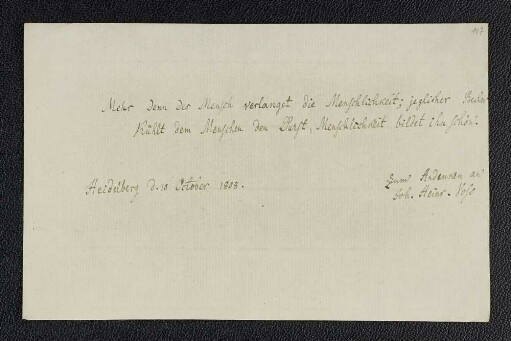 147
Mehr denn der Mensch verlanget die Menschlichkeit; jeglicher Becher
Kühlt dem Menschen den Durst, Menschlichkeit bildet ihn schön.
Heidelberg d. 10 October 1808.
Zum Andenken an
Joh. Heinr. Voß